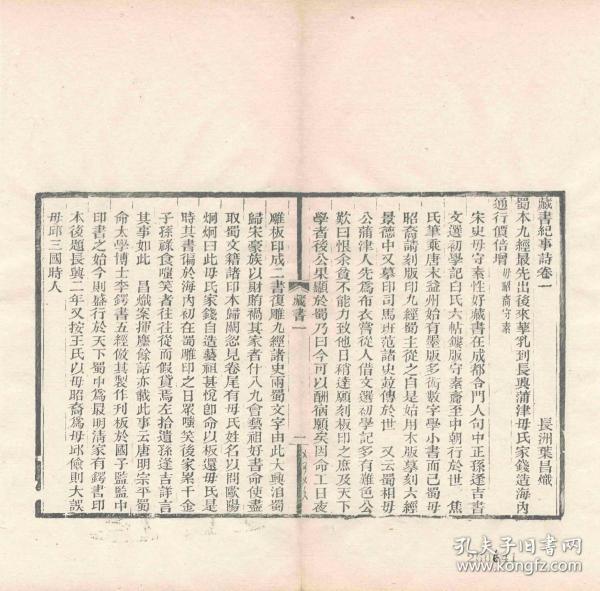 藏書紀事詩卷一
長洲葉昌熾
蜀本九經最先出後來孳乳到長興蒲津毋氏家錢造海內
通行價倍增毋昭裔守素
宋史毋守素性好藏書在成都令門人句中正孫逢吉書
文選初學記白氏六帖鏤版守素齎至中朝行於世 焦
氏筆乘唐末益州始有墨版多術數字學小書而已蜀毋
昭裔請刻版印九經蜀主從之自是始用木版摹刻六經
景德中又摹印司馬班范諸史竝傳於世 又云蜀相毋
公蒲津人先爲布衣嘗從人借文選初學記多有難色公
歎曰恨余貧不能力致他日稍達願刻板印之庶及天下
學者後公果顯於蜀乃曰今可以酬宿願矣因命工日夜
藏書一
一
雕板印成二書復雕九經諸史兩蜀文字由此大興洎蜀
歸宋豪族以財賄禍其家者什八九會藝祖好書命使盡
取蜀文籍諸印本歸闕忽見卷尾有毋氏姓名以問歐陽
炯炯曰此毋氏家錢自造藝祖甚悅卽命以板還毋氏是
時其書徧於海內初在蜀雕印之日眾嗤笑後家累千金
子孫祿食嗤笑者往往從而假貸焉左拾遺孫逢吉詳言
其事如此 昌熾案揮麈餘話亦載此事云唐明宗平蜀
命太學博士李鍔書五經倣其製作刊板於國子監監中
印書之始今則盛行於天下蜀中爲最明清家有鍔書印
本後題長興二年又按王氏以毋昭裔爲毋邱儉則大誤
毋邱三國時人
孔夫子旧书网
www.kongfz.com